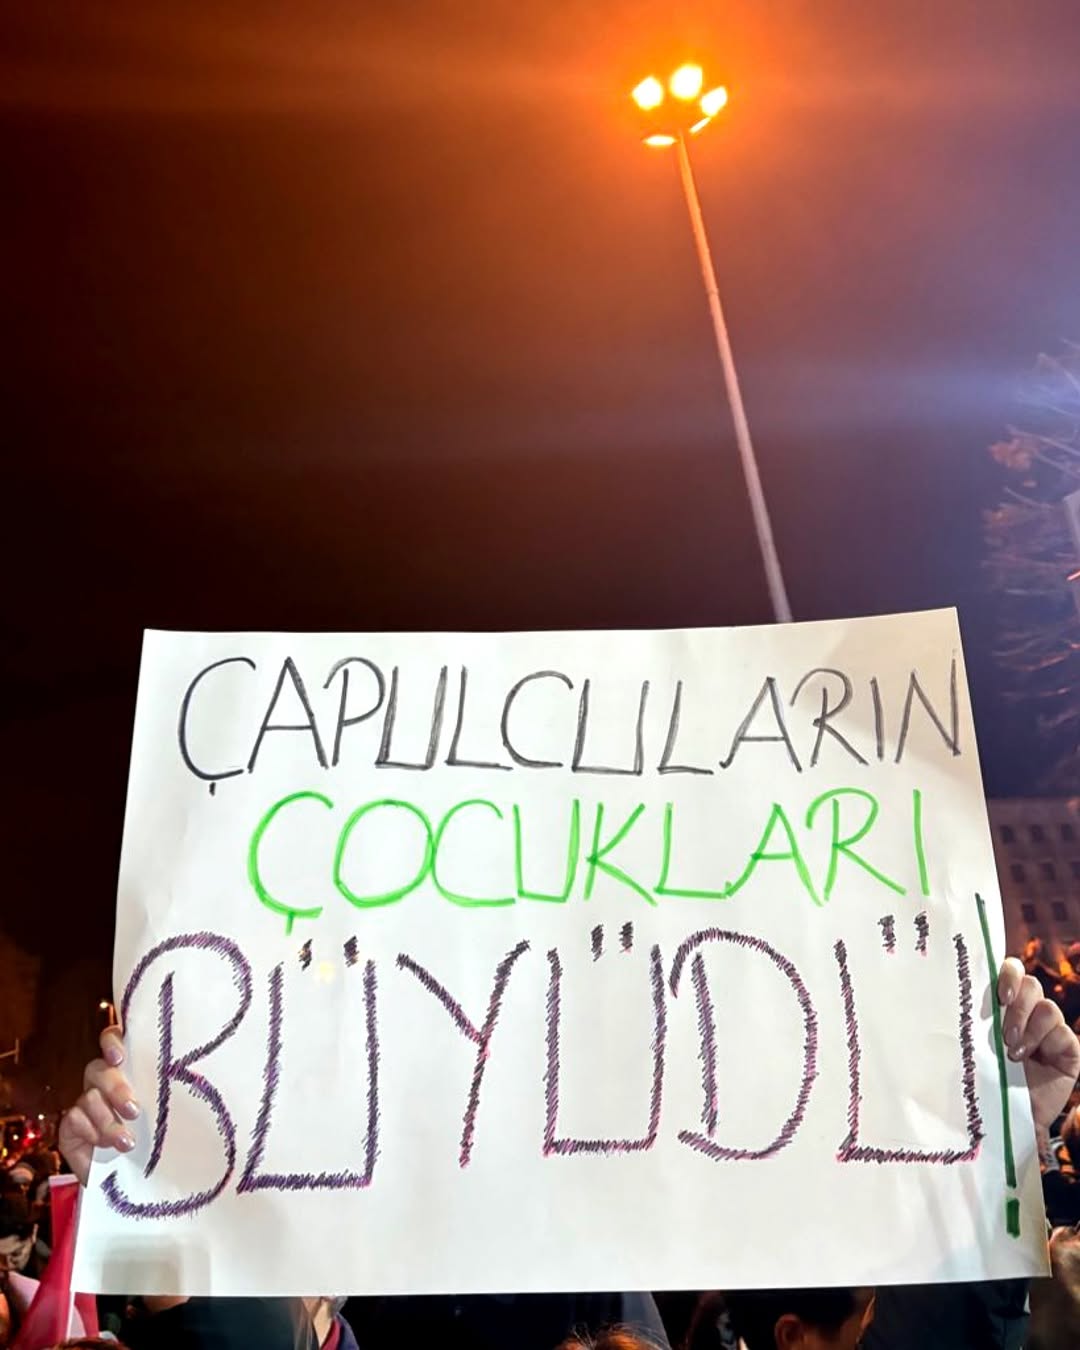 ÇAPULCULARIN
ÇOCUKLARI
BÜYÜDÜ!